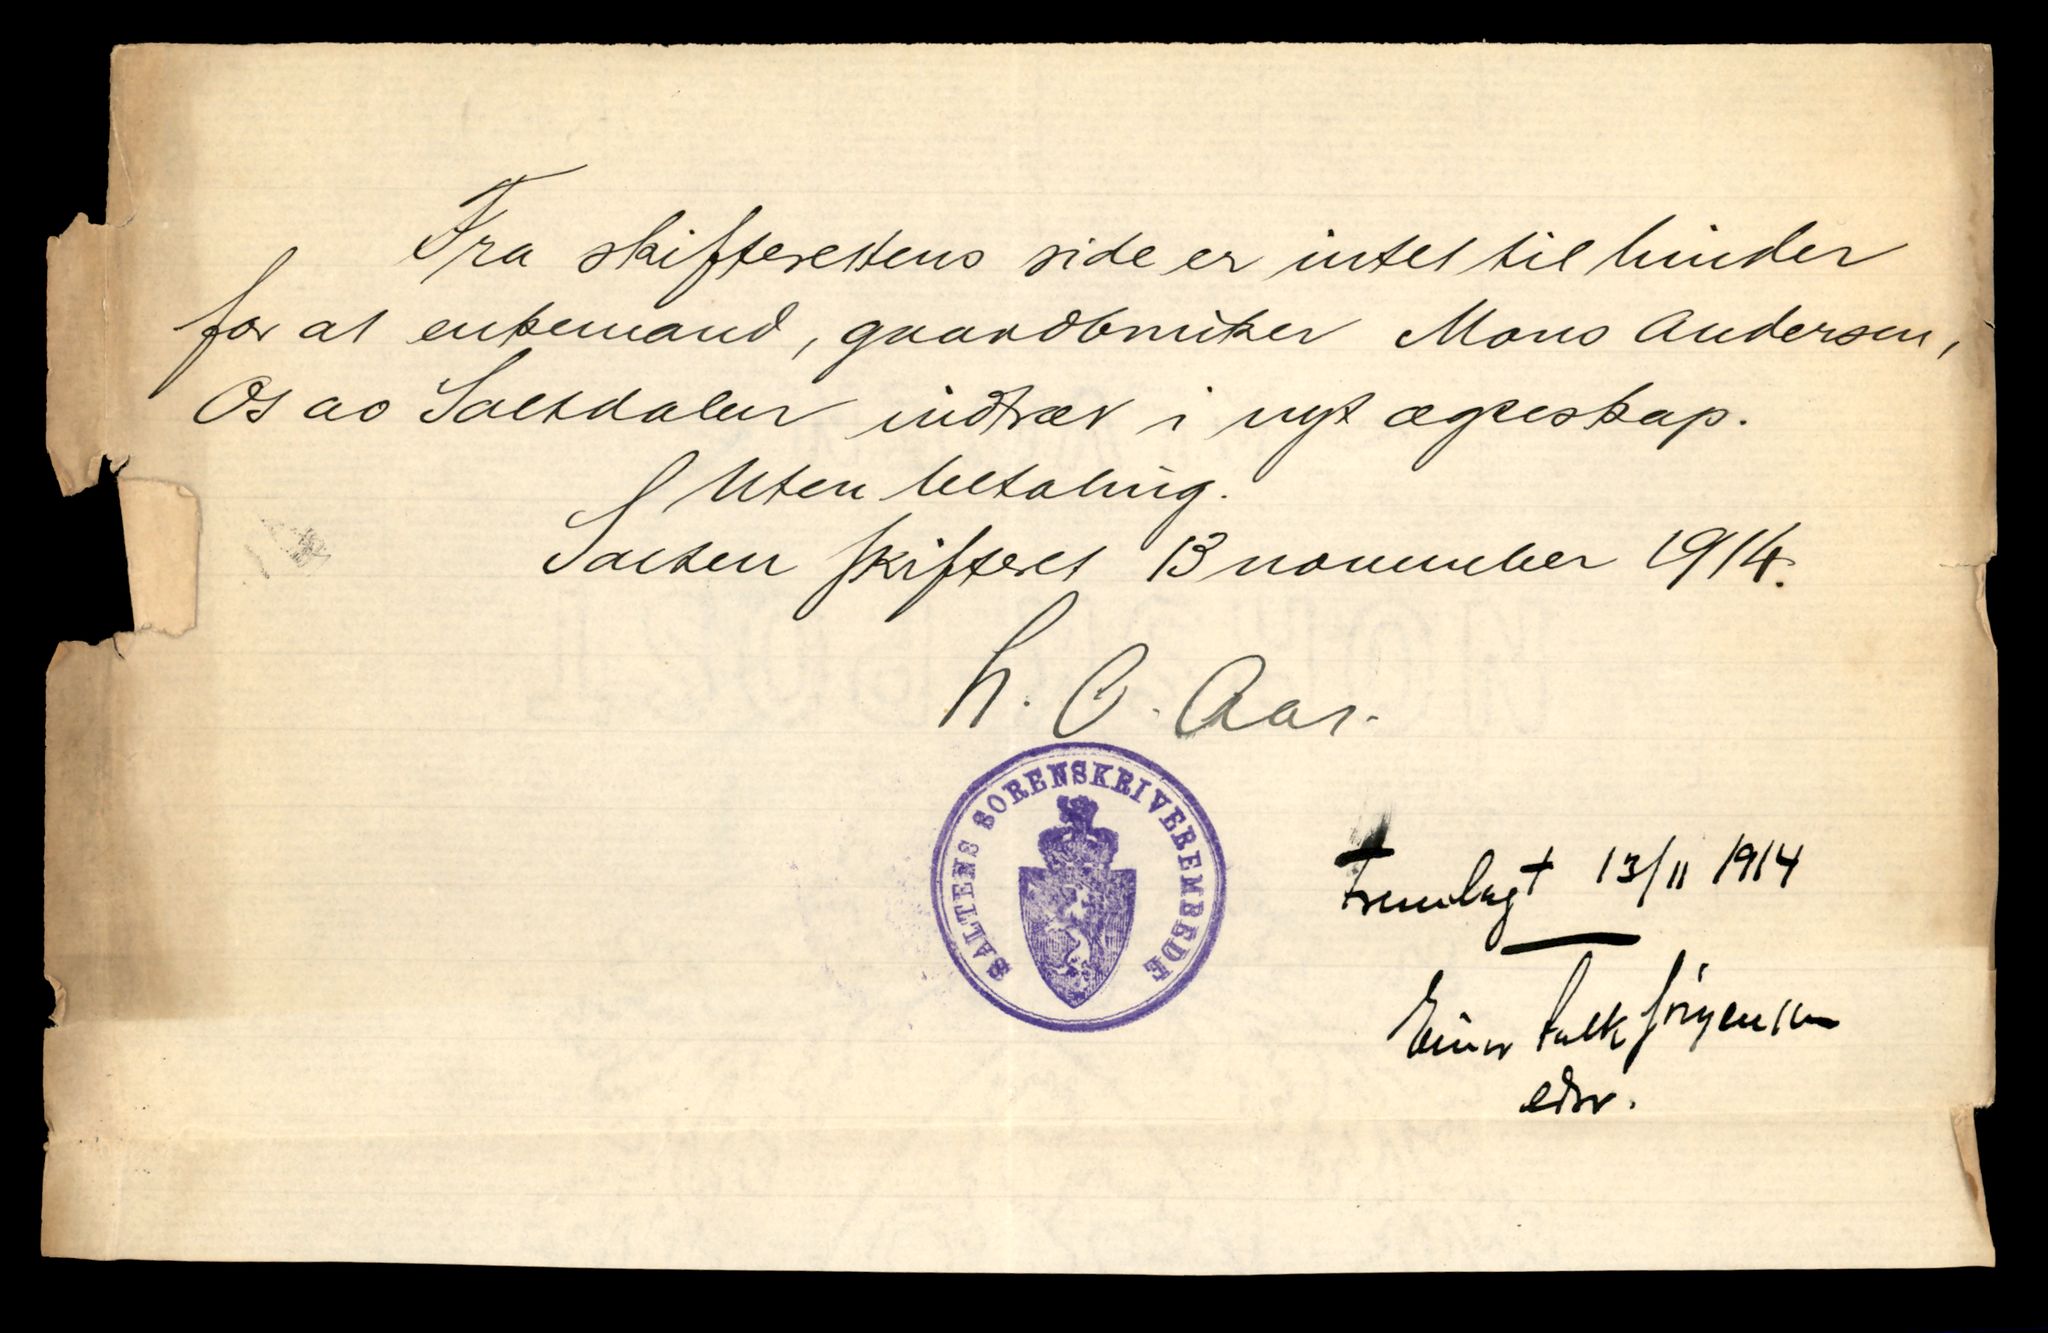 Fra skifterettens side er intet til hinder
for at enkemand, gaardbruker Mons Andersen,
Os av Saltdalen indtræv i nyt ægteskap.
Uten betaling.
Salten skifteret 13 november 1914.
H. O. Aas.
SALTENS SORENSKRIVEREMBEDE
Fremlagt 13/11 1914
Einar Falk Jörgensen
edsv.